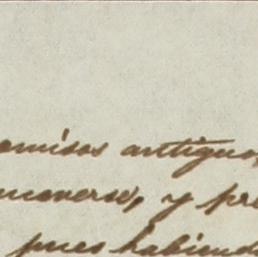 omisos antiguos,
moverse, y pre
pues habiendo